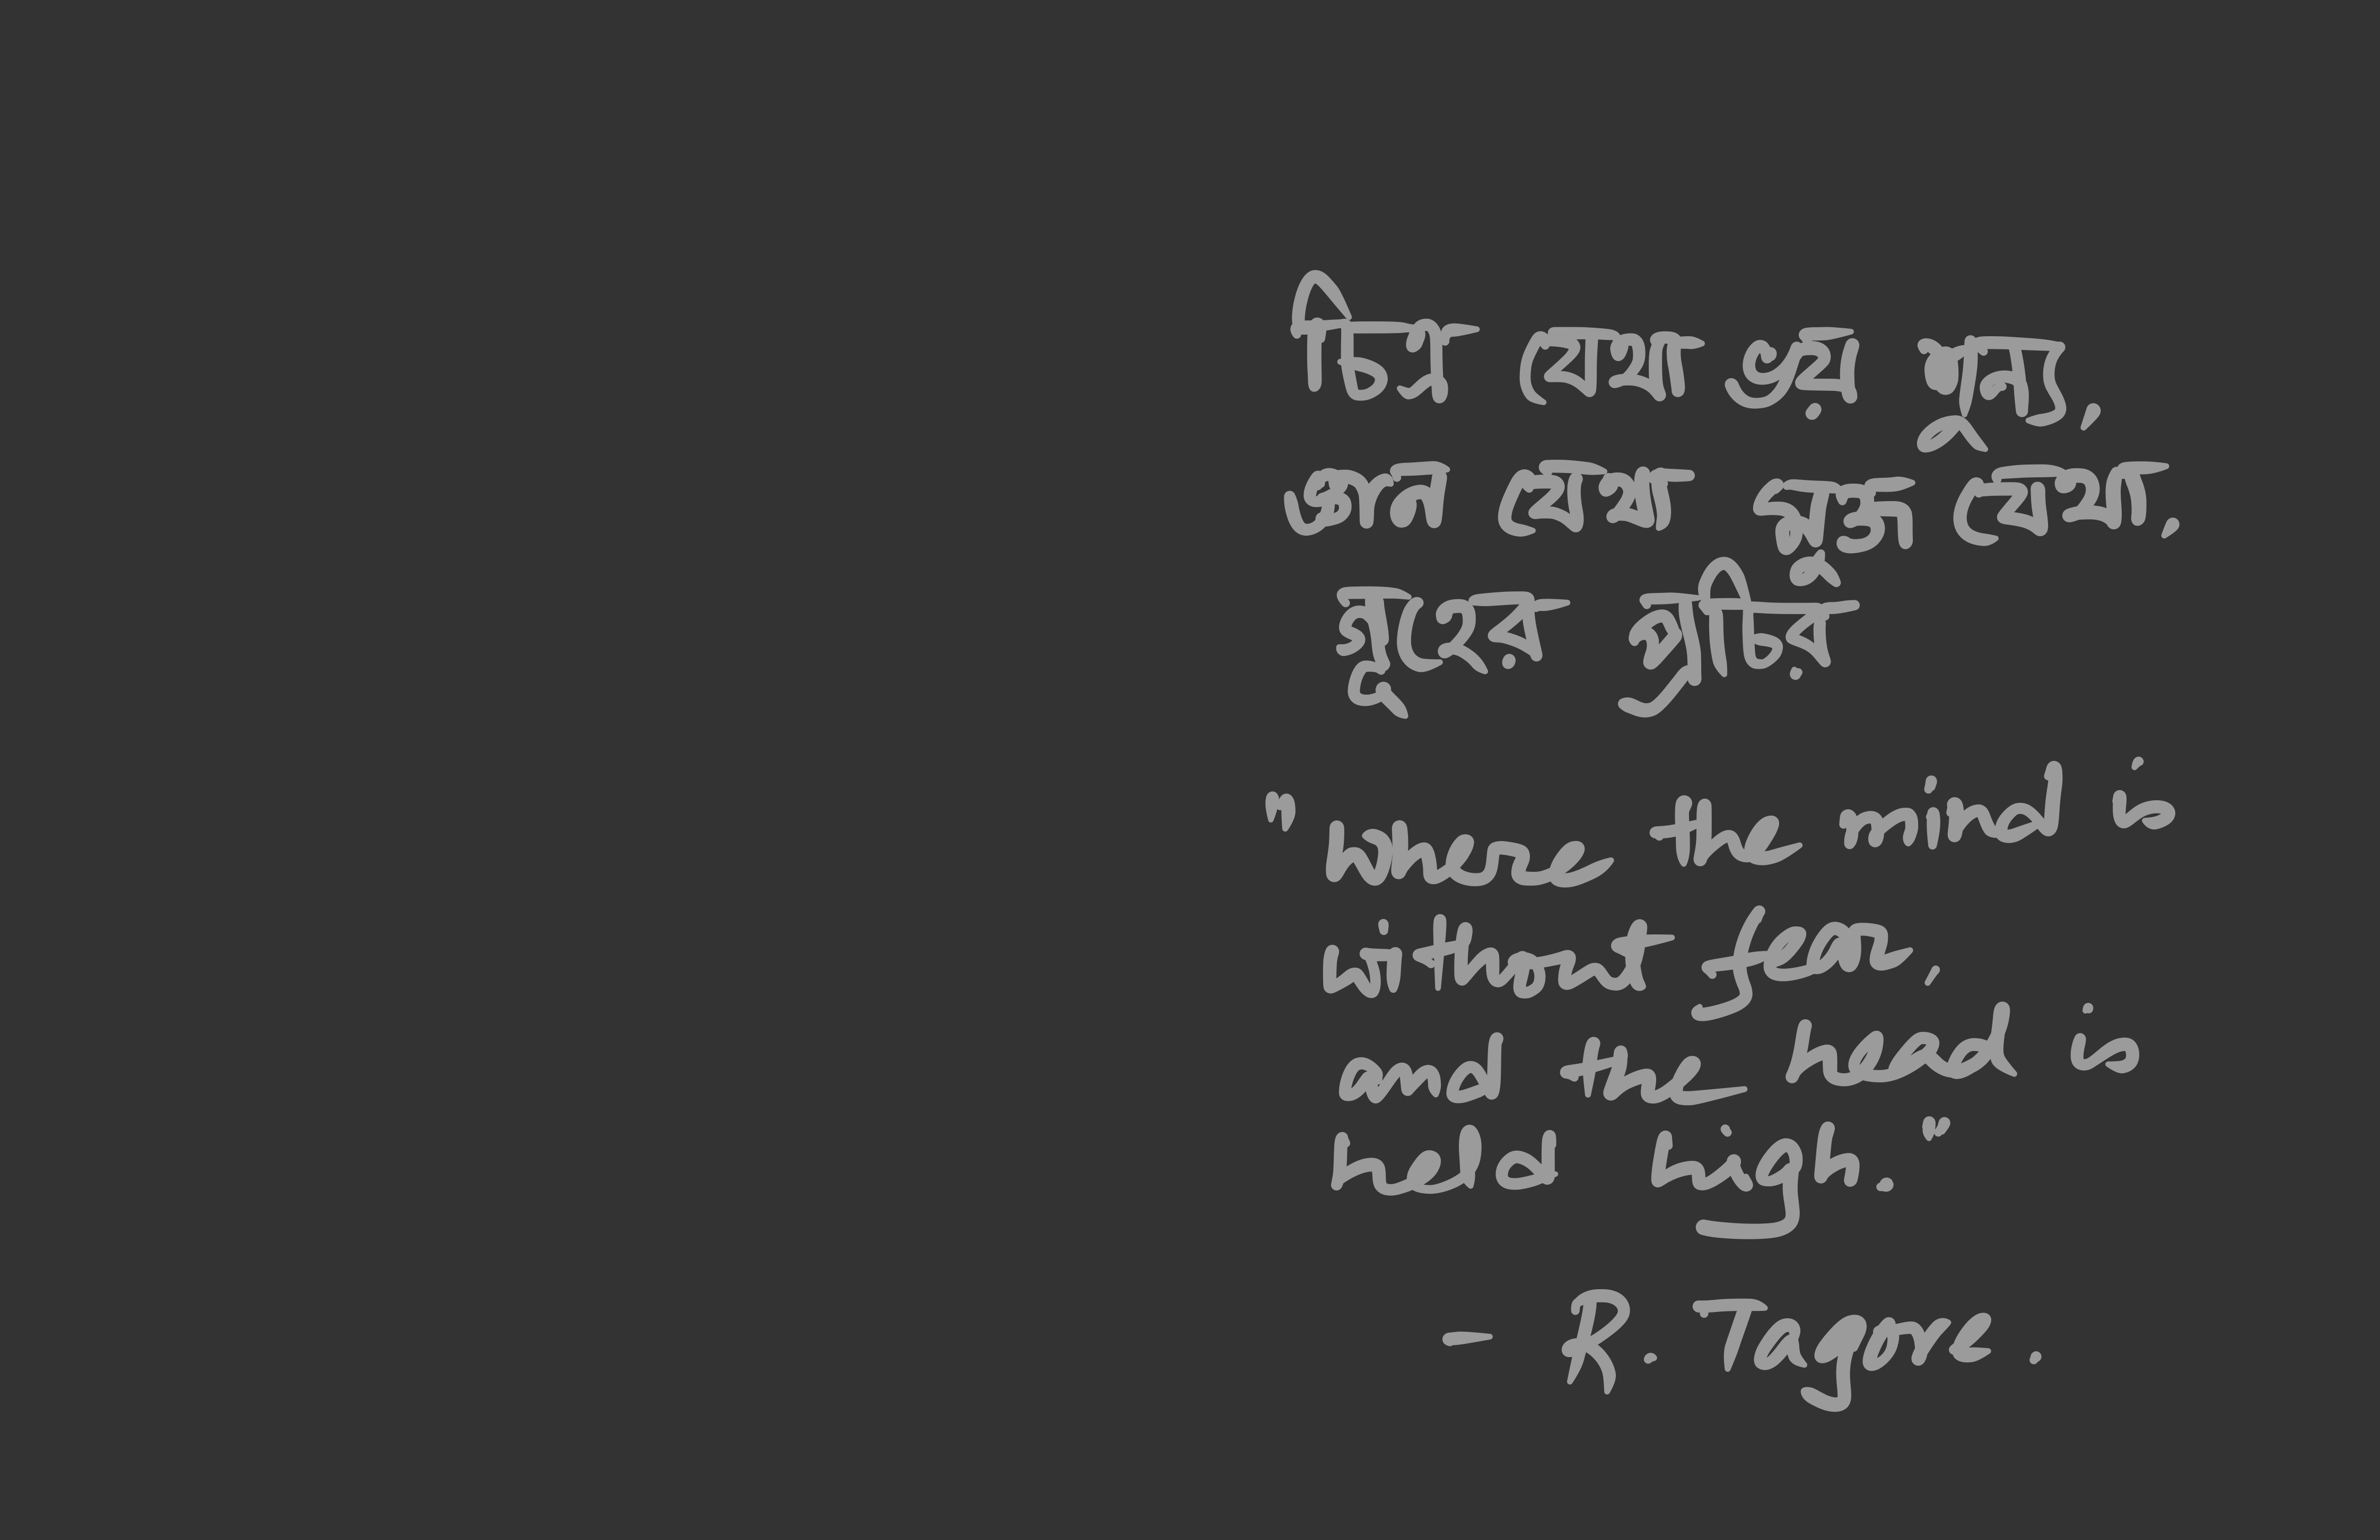 চিত্ত যেথা ভয় শূন্য,
জ্ঞান যেথা মুক্ত যেথা,
গৃহের প্রাচির
"where the mind is
without fear,
and the head is
held high."
— R. Tagore.